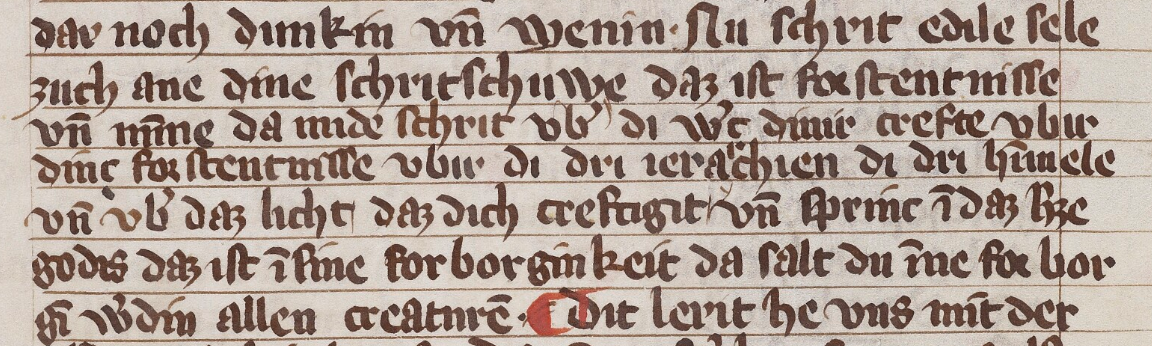 dar noch dunkin vn̄ wenin· Nu schrit edile sele
zuch ane dine schritschuwe daz ist forstentnisse
vn̄ mīne da mide schrit vb᾽ di w᾽c dinir crefte vbir
dinc forstentnisse vbir di dri ierarchien di dri hīmele
vn̄ vb᾽ daz licht daz dich creftigit vn̄ sprinc ī daz h᾽ze
godis daz ist ī sine forborginkeit da salt du īne forbor
gī w᾽din allen creaturē· ¶ Dit lerit he vns mīt der